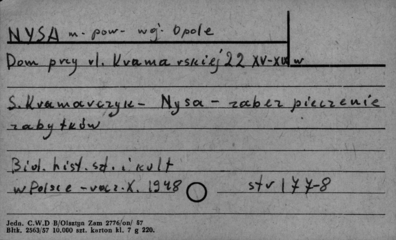 NYSA m. pow- woj. Opole
Dom przy ul. Kramarskiej 22 XV-XIX w
S. Kramarczyk- Nysa - zabezpieczenie
zabytków
Biol. hist. szt. i kult
w Polsce - rocz. X. 1948 str 177-8
Jedn. C.W.D B/Olsztyn Zam 2776/on/ 57
Bltk. 2563/57 10.000 szt. karton kl. 7 g 220.